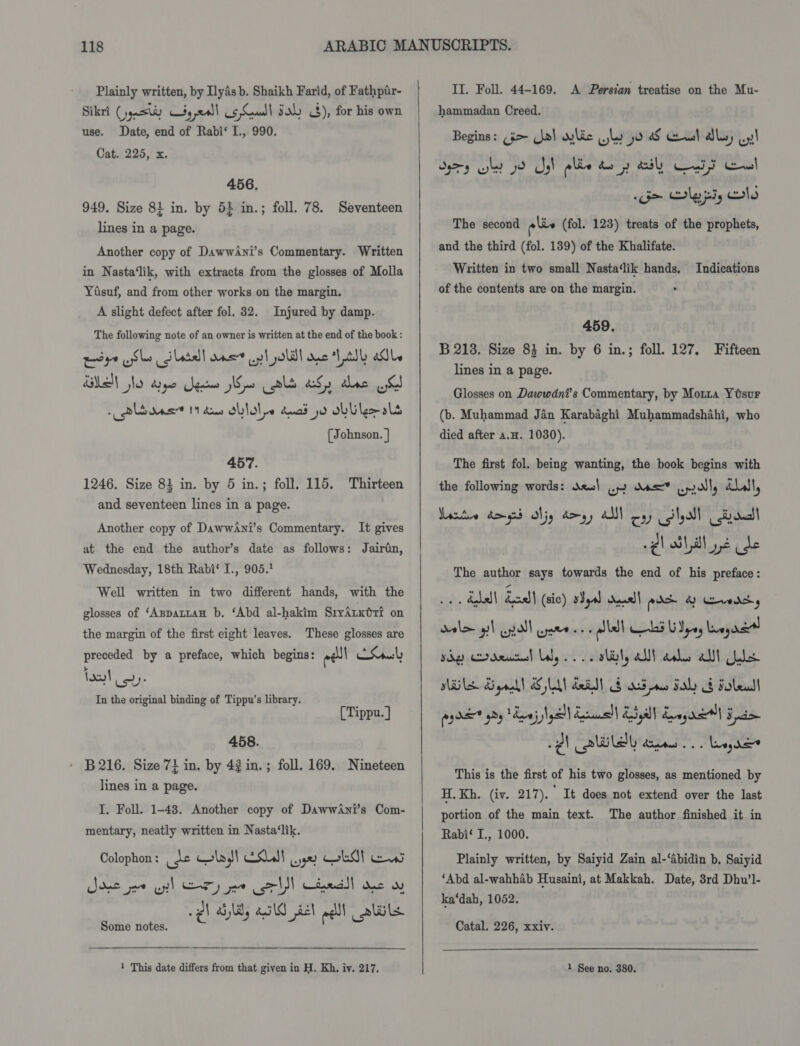 118 ARABIC MANUSCRIPTS.
Plainly written, by Ilyás b. Shaikh Farid, of Fathpúr-
Sikri (فى بلدة السيكرى المعروف بفتحپور), for his own
use. Date, end of Rabi‘ I., 990.
Cat. 225, x.
456.
949. Size 8¼ in. by 5¼ in.; foll. 78. Seventeen
lines in a page.
Another copy of Dawwáni’s Commentary. Written
in Nasta‘lik, with extracts from the glosses of Molla
Yúsuf, and from other works on the margin.
A slight defect after fol. 32. Injured by damp.
The following note of an owner is written at the end of the book:
مالكه بالشراء عبد القادر ابن محمد العثمانى ساكن موضع
ليكن عمله پركنه شاهى سركار سنبهل صوبه دار الخلافة
شاه‌جهاناباد در قصبه مراداباد سنه ١٩ محمدشاهى.
[Johnson.]
457.
1246. Size 8¼ in. by 5 in.; foll. 115. Thirteen
and seventeen lines in a page.
Another copy of Dawwáni’s Commentary. It gives
at the end the author’s date as follows: Jairún,
Wednesday, 18th Rabi‘ I., 905.¹
Well written in two different hands, with the
glosses of ‘Abdallah b. ‘Abd al-hakim Siyálkútí on
the margin of the first eight leaves. These glosses are
preceded by a preface, which begins: باسمك اللهم
ربى ابتدأ.
In the original binding of Tippu’s library.
[Tippu.]
458.
B 216. Size 7¼ in. by 4¾ in.; foll. 169. Nineteen
lines in a page.
I. Foll. 1–43. Another copy of Dawwáni’s Com-
mentary, neatly written in Nasta‘lik.
Colophon: تمت الكتاب بعون الملك الوهاب على
يد عبد الضعيف الراجى مير رحمت ابن مير عبدل
خانقاهى اللهم اغفر لكاتبه ولقارئه الخ.
Some notes.
¹ This date differs from that given in H. Kh. iv. 217.
II. Foll. 44–169. A Persian treatise on the Mu-
hammadan Creed.
Begins: اين رساله است كه در بيان عقايد اهل حق
است ترتيب يافته بر سه مقام اول در بيان وجود
ذات وتنزيهات حق.
The second مقام (fol. 123) treats of the prophets,
and the third (fol. 139) of the Khalifate.
Written in two small Nasta‘lik hands. Indications
of the contents are on the margin.
459.
B 213. Size 8¼ in. by 6 in.; foll. 127. Fifteen
lines in a page.
Glosses on Dawwání’s Commentary, by Molla Yúsuf
(b. Muhammad Ján Karabághi Muhammadsháhi, who
died after A.H. 1030).
The first fol. being wanting, the book begins with
the following words: والملة والدين محمد بن اسعد
الصديقى الدوانى روح الله روحه وزاد فتوحه مشتملا
على غرر الفرائد الخ.
The author says towards the end of his preface:
وخدمت به خدم العبيد لمولاه (sic) العتبة العلية ...
لمخدومنا ومولانا قطب العالم ... معين الدين ابو حامد
خليل الله سلمه الله وابقاه .... ولما استسعدت بهذه
السعادة فى بلدة سمرقند فى البقعة المباركة الميمونة خانقاه
حضرة المخدومية الغوثية الحسنية الخوارزمية¹ وهو مخدوم
مخدومنا ... سميته بالخانقاهى الخ.
This is the first of his two glosses, as mentioned by
H. Kh. (iv. 217). It does not extend over the last
portion of the main text. The author finished it in
Rabi‘ I., 1000.
Plainly written, by Saiyid Zain al-‘ábidin b. Saiyid
‘Abd al-wahháb Husaini, at Makkah. Date, 3rd Dhu’l-
ka‘dah, 1052.
Catal. 226, xxiv.
¹ See no. 380.